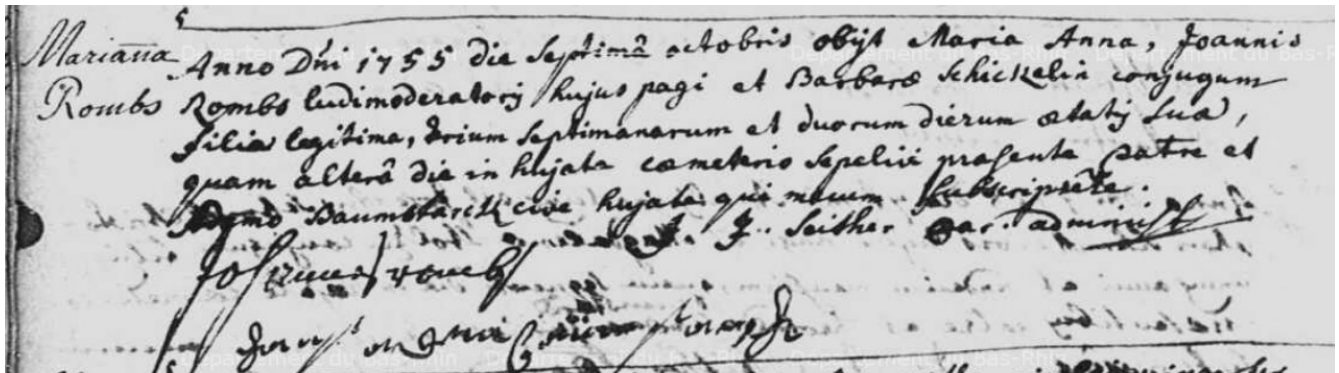 Mariana
Rombs
Anno Dni 1755 die septimâ octobris obijt Maria Anna, Joannis
Rombs ludimoderatoris hujus pagi et Barbaræ Schickelin conjugum
filia legitima, trium septimanarum et duorum dierum ætatis sua,
quam alterâ die in hujate cœmeterio sepelivi præsente patre et
Baumstarck cive hujate qui mecum subscripsêre.
J. J. Seither Par. administ